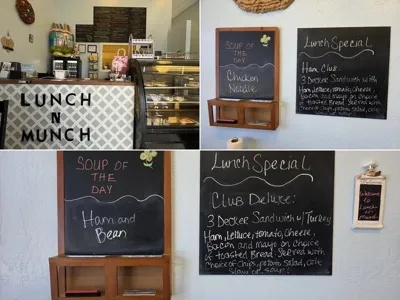 LUNCH
N
MUNCH
LUNCH
N
MUNCH
SOUP OF
THE
DAY
Chicken
Noodle
Lunch Special
Ham Club
3 Decker Sandwich with
Ham, Lettuce, tomato, Cheese,
bacon and mayo on choice
of toasted Bread. Served with
choice of chips,
potato Salad,
SOUP OF
THE
DAY
Ham and
Bean
Lunch Special
Club Deluxe:
3 Decker Sandwich w/ Turkey
Ham, Lettuce, tomato, Cheese,
bacon and mayo on choice
of toasted Bread. Served with
choice of chips, potato Salad, cole
Slaw or soup!
Welcome
to
Lunch
n
Munch